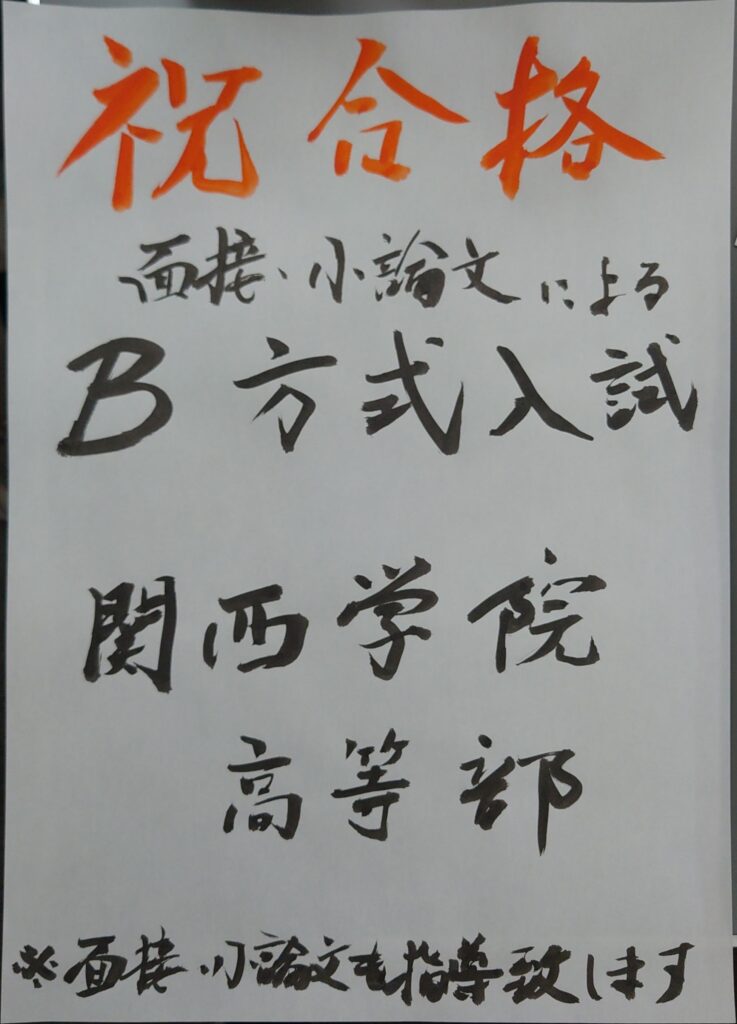 祝合格
面接、小論文による
B方式入試
関西学院
高等部
※面接、小論文も指導致します